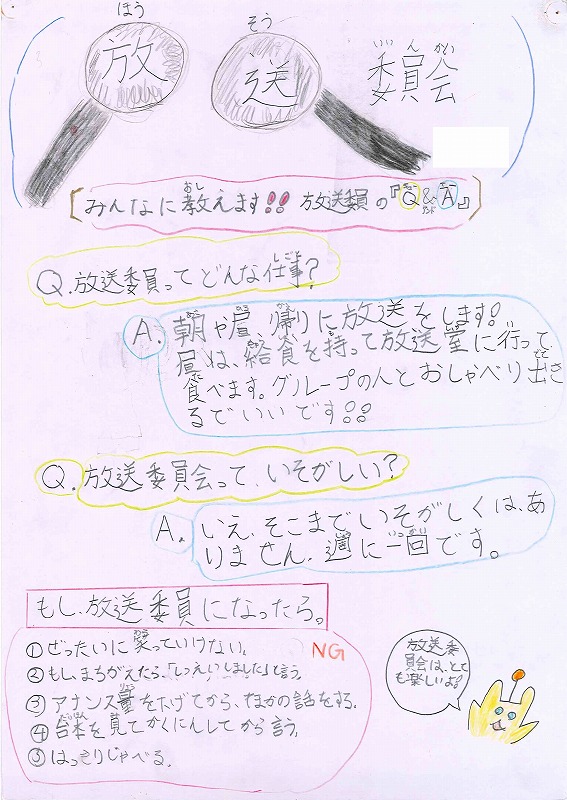 放送委員会
みんなに教えます!! 放送委員の『Q&A』
Q.放送委員ってどんな仕事?
A.朝や昼、帰りに放送をします!
昼は、給食を持って放送室に行って、
食べます。グループの人とおしゃべり出き
るでいいです!!
Q.放送委員会って、いそがしい?
A.いえ、そこまでいそがしくは、あ
りません、週に一回です。
もし、放送委員になったら。
①ぜったいに笑っていけない。
NG
②もし、まちがえたら、「しつえいしました」と言う。
③アナンス量を下げてから、ほかの話をする。
④台本を見てかくにんしてから言う。
⑤はっきりしゃべる。
放送委
員会は、とて
も楽しいよ!